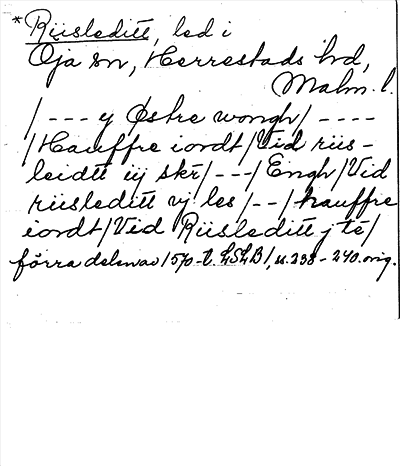 *Riisleditt, led i
Öja sn, Herrestads hd,
Malm. l.
/--- y Østre wongh/----
/Hauffre iordt/Vid riis-
leidtt iij skr/---/Engh/Vid
riisleditt vj les/--/hauffre
iordt/Vid Riisleditt j te/
förra delen av 1570-t. LSLB/, s. 238-240. orig.